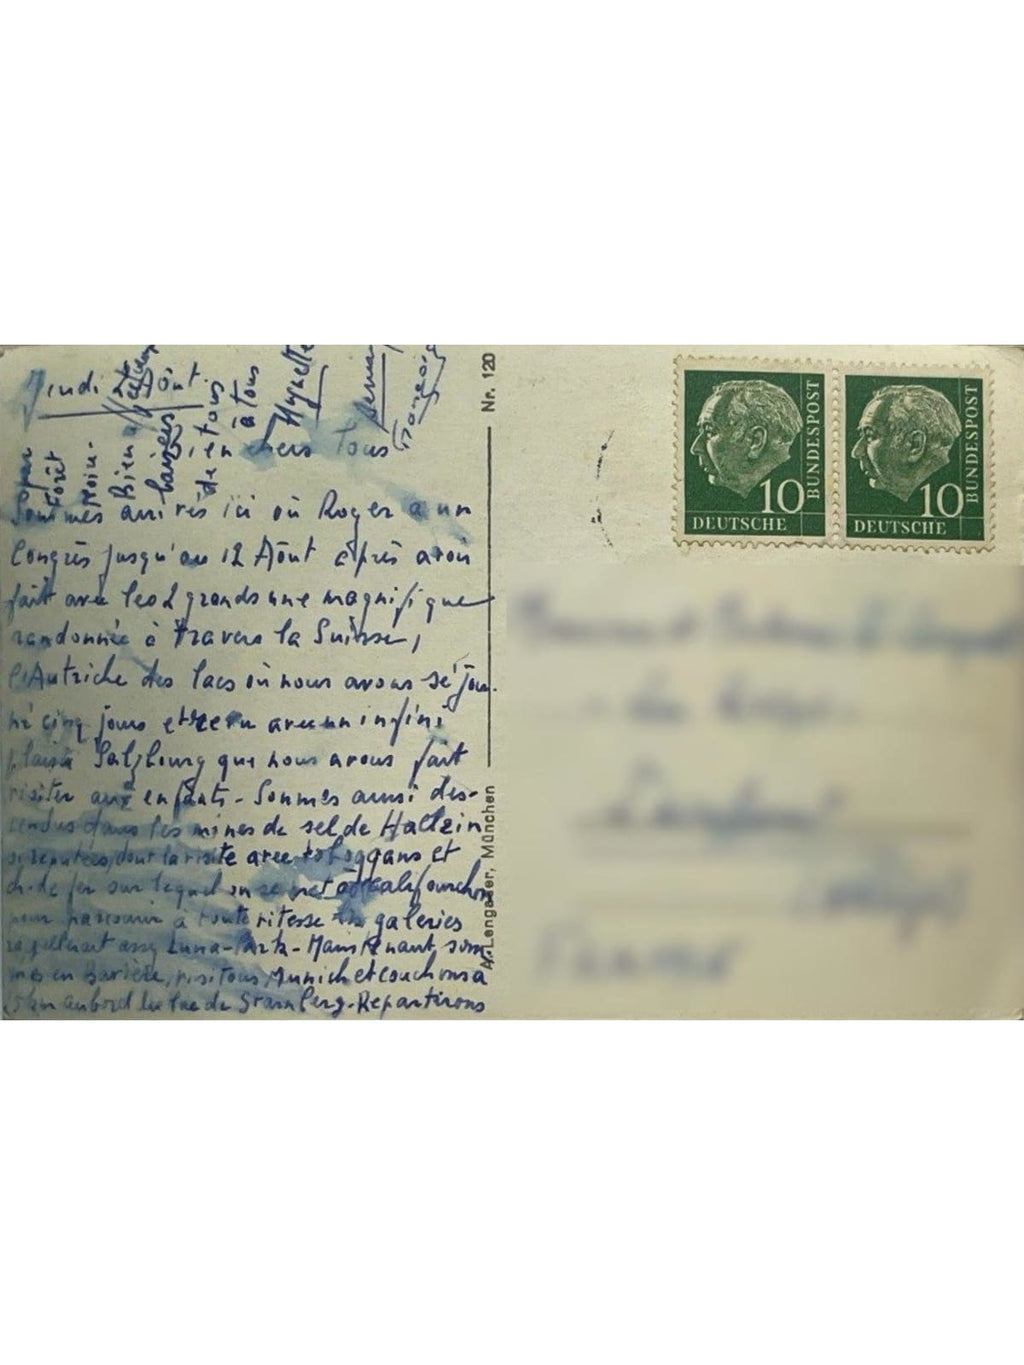 Jeudi 7 Août.
Bien chers Tous
Sommes arrivés ici où Roger a un
Congrès jusqu'au 12 Août après avoir
fait avec les 2 grands une magnifique
randonnée à travers la Suisse,
l'Autriche des lacs où nous avons séjour-
né cinq jours et revu avec un infini
plaisir Salzbourg que nous avons fait
visiter aux enfants - Sommes aussi des-
cendus dans les mines de sel de Hallein
si réputées, dont la visite avec toboggans et
ch. de fer sur lequel on se met à califourchon
pour parcourir à toute vitesse les galeries
rappellerait assez Luna-Park - Maintenant, som
mes en Bavière, visitons Munich et couchons à
25 km au bord du lac de Starnberg - Repartirons
par
Forêt
Noire.
Bien affectueux
baisers
de tous
à tous
Huguette
A. Lengauer, München
Nr. 120
10
DEUTSCHE
BUNDESPOST
10
DEUTSCHE
BUNDESPOST